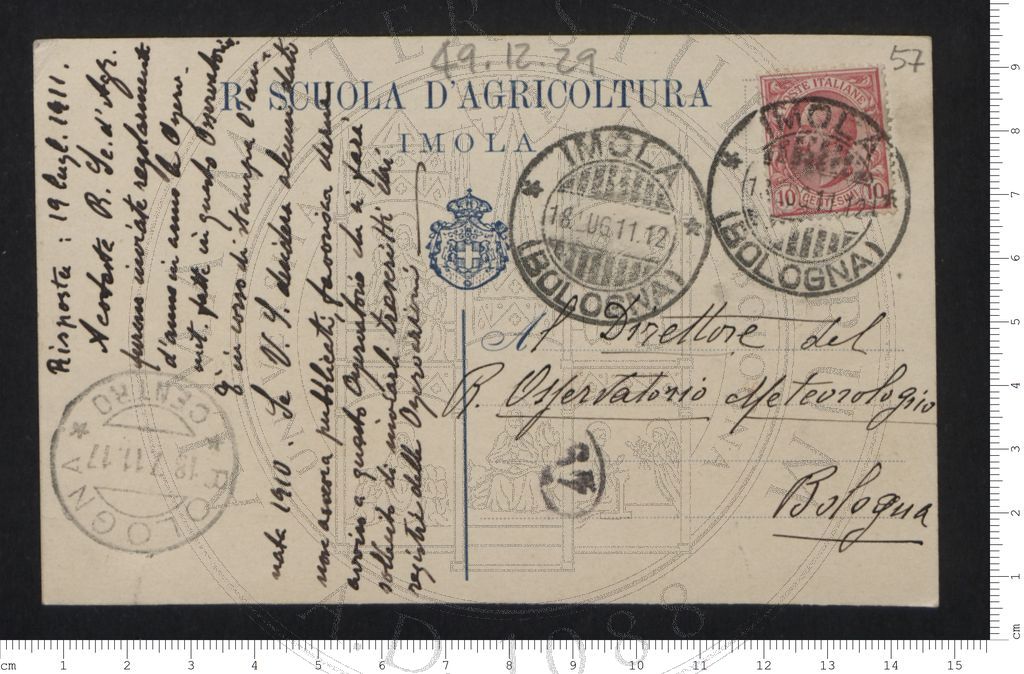 49.12.29
57
R. SCUOLA D'AGRICOLTURA
IMOLA
POSTE ITALIANE
10 CENTESIMI 10
IMOLA
18 LUG.11.12
(BOLOGNA)
IMOLA
(BOLOGNA)
Al Direttore del
R. Osservatorio Meteorologico
Bologna
Risposta: 19 lugl. 1911.
A codesta R. Sc. d'Agr.
furono inviate regolarmente
d'anno in anno le Osserv.
met. fatte in questo Osservatorio.
È in corso di stampa l'an-
nata 1910. Se V. S. desidera alcuni dati
non ancora pubblicati, favorisca darne
avviso a questo Osservatorio che si farà
sollecito di inviarli trascritti dai
registri delle Osservazioni
BOLOGNA
CENTRO
18.7.11.17